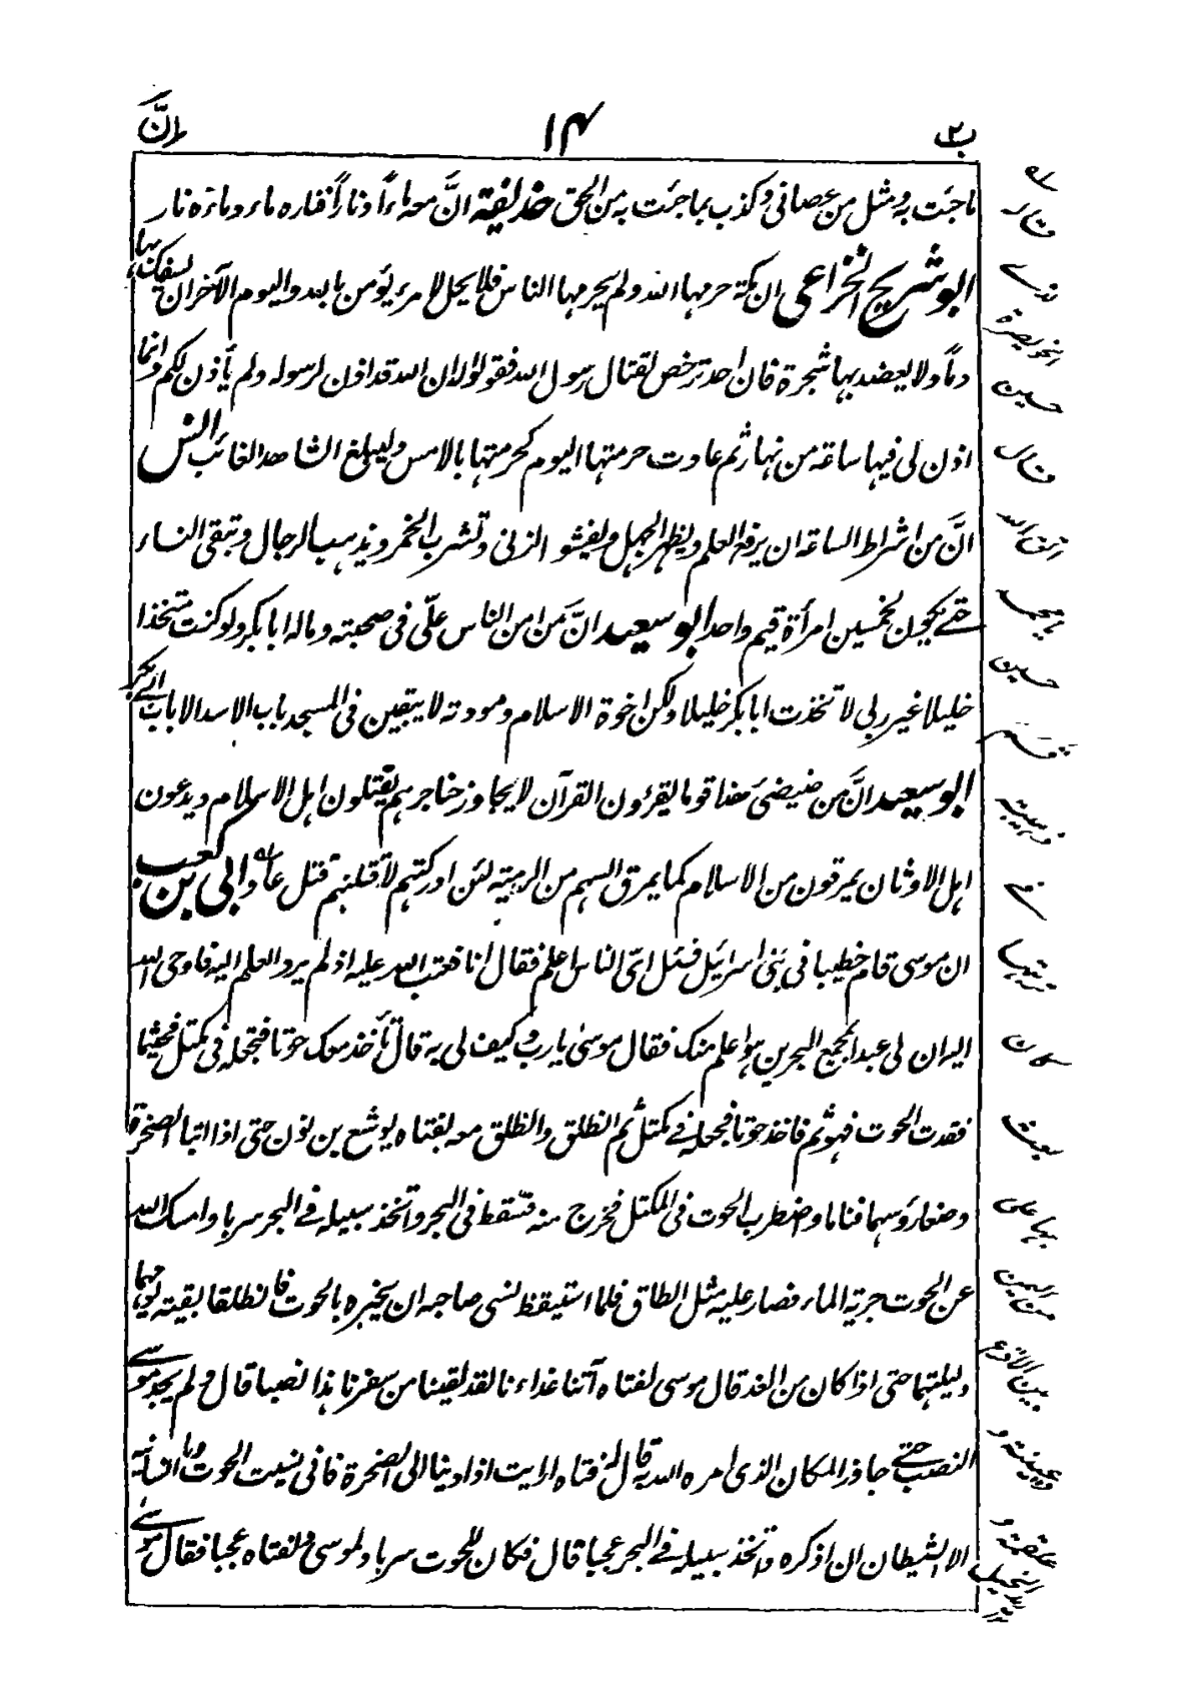 ب٢ ١٤ انَّ
ما جئت به ومثل من عصانى وكذب بما جئت به من الحق حذيفة انَّ معه ماءً وناراً فناره ماء وماءه نار
ابو شريح الخزاعى ان مكة حرمها الله ولم يحرمها الناس فلا يحل لامرء يؤمن بالله واليوم الآخر ان يسفك بها
دماً ولا يعضد بها شجرة فان احد ترخص لقتال رسول الله فقولوا له ان الله قد اذن لرسوله ولم يأذن لكم وانما
اذن لى فيها ساعة من نهار ثم عادت حرمتها اليوم كحرمتها بالامس وليبلغ الشاهد الغائب انس
انَّ من اشراط الساعة ان يرفع العلم ويظهر الجهل ويفشو الزنى وتشرب الخمر ويذهب الرجال وتبقى النساء
حتے يكون لخمسين امرأة قيم واحد ابو سعيد انَّ من امن الناس علّى فى صحبته وماله ابا بكر ولو كنت متخذا
خليلا غير ربى لاتخذت ابا بكر خليلا ولكن اخوة الاسلام ومودته لا يبقين فى المسجد باب الا سد الا باب ابى بكر
ابو سعيد انَّ من ضيضئ هذا قوما يقرؤن القرآن لا يجاوز حناجرهم يقتلون اهل الاسلام ويدعون
اهل الاوثان يمرقون من الاسلام كما يمرق السهم من الرمية لئن ادركتهم لاقتلنهم قتل عاد ابى بن كعب
ان موسى قام خطيبا فى بنى اسرائيل فسئل اىّ الناس اعلم فقال انا فعتب الله عليه اذ لم يرد العلم اليه فاوحى الله
اليه ان لى عبدا بمجمع البحرين هو اعلم منك فقال موسىٰ يا رب وكيف لى به قال تأخذ معك حوتا فتجعله فى مكتل فحيثما
فقدت الحوت فهو ثم فاخذ حوتا فجعله فے مكتل ثم انطلق وانطلق معه بفتاه يوشع بن نون حتى اذا اتيا الصخرة
وضعا رؤسهما فناما واضطرب الحوت فى المكتل فخرج منه فسقط فى البحر واتخذ سبيله فے البحر سربا وامسك الله
عن الحوت جرية الماء فصار عليه مثل الطاق فلما استيقظ نسى صاحبه ان يخبره بالحوت فانطلقا بقية يومهما
وليلتهما حتى اذا كان من الغد قال موسى لفتاه آتنا غداءنا لقد لقينا من سفرنا هذا نصبا قال ولم يجد موسے
النصب حتے جاوز المكان الذى امره الله به قال له فتاه ارايت اذ اوينا الى الصخرة فانى نسيت الحوت وما انسانيه
الا الشيطان ان اذكره واتخذ سبيله فے البحر عجبا قال فكان للحوت سربا ولموسى ولفتاه عجبا فقال موسے
الخويصرة
حسين
حسين
بعث
بها على
من اليمن
بين الاقرع
وعيينة و
علقمة و